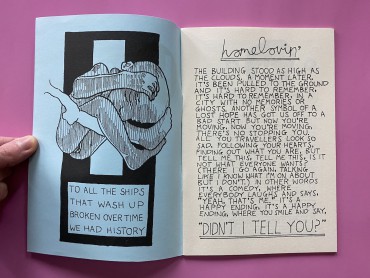 TO ALL THE SHIPS
THAT WASH UP
BROKEN OVER TIME
WE HAD HISTORY
homelovin'
THE BUILDING STOOD AS HIGH AS
THE CLOUDS, A MOMENT LATER,
IT'S BEEN PULLED TO THE GROUND
AND IT'S HARD TO REMEMBER,
IT'S HARD TO REMEMBER. IN A
CITY WITH NO MEMORIES OR
GHOSTS, ANOTHER SYMBOL OF A
LOST HOPE HAS GOT US OFF TO A
BAD START BUT NOW YOU'RE
MOVING, NOW YOU'RE MOVING,
THERE'S NO STOPPING YOU.
ALL YOU TRAVELLERS LOOK SO
SAD, FOLLOWING YOUR HEARTS,
FINDING OUT WHAT YOU ARE, BUT
TELL ME THIS, TELL ME THIS, IS IT
NOT WHAT EVERYONE WANTS?
(THERE I GO AGAIN, TALKING
LIKE I KNOW WHAT I'M ON ABOUT
BUT I DON'T.) IN OTHER WORDS
IT'S A COMEDY, WHERE
EVERYBODY LAUGHS AND SAYS,
"YEAH, THAT'S ME." IT'S A
HAPPY ENDING, IT'S A HAPPY
ENDING, WHERE YOU SMILE AND SAY,
"DIDN'T I TELL YOU?"